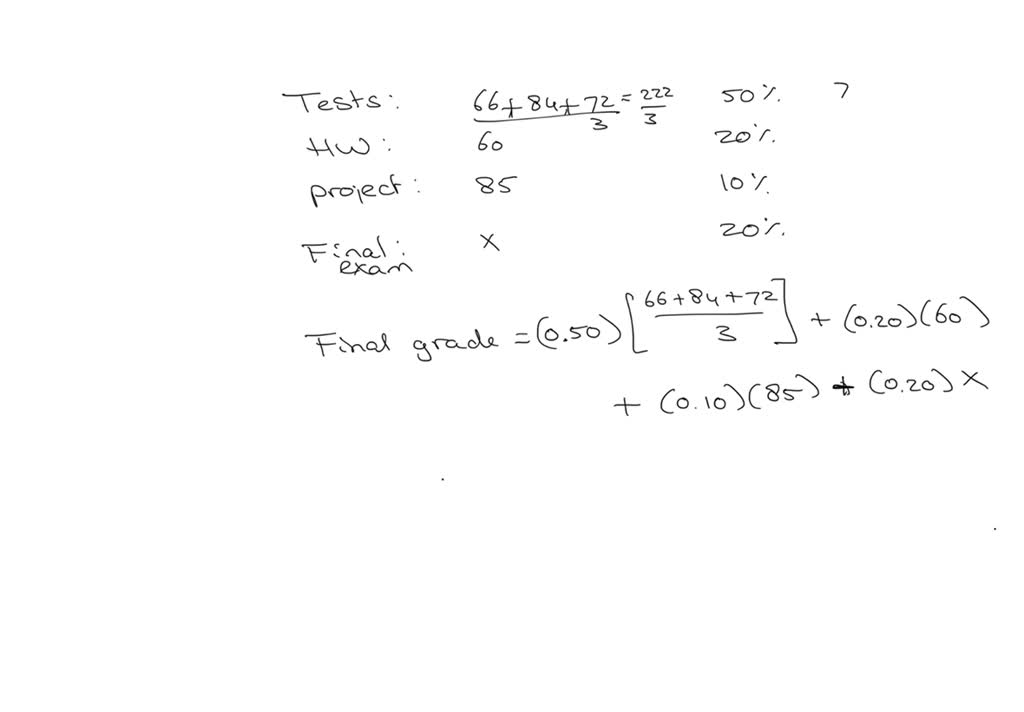 Tests: 66+84+72/3 = 222/3 50%. 7
HW: 60 20%.
project: 85 10%.
Final exam: x 20%.
Final grade = (0.50) [66+84+72/3] + (0.20)(60)
+ (0.10)(85) + (0.20) x